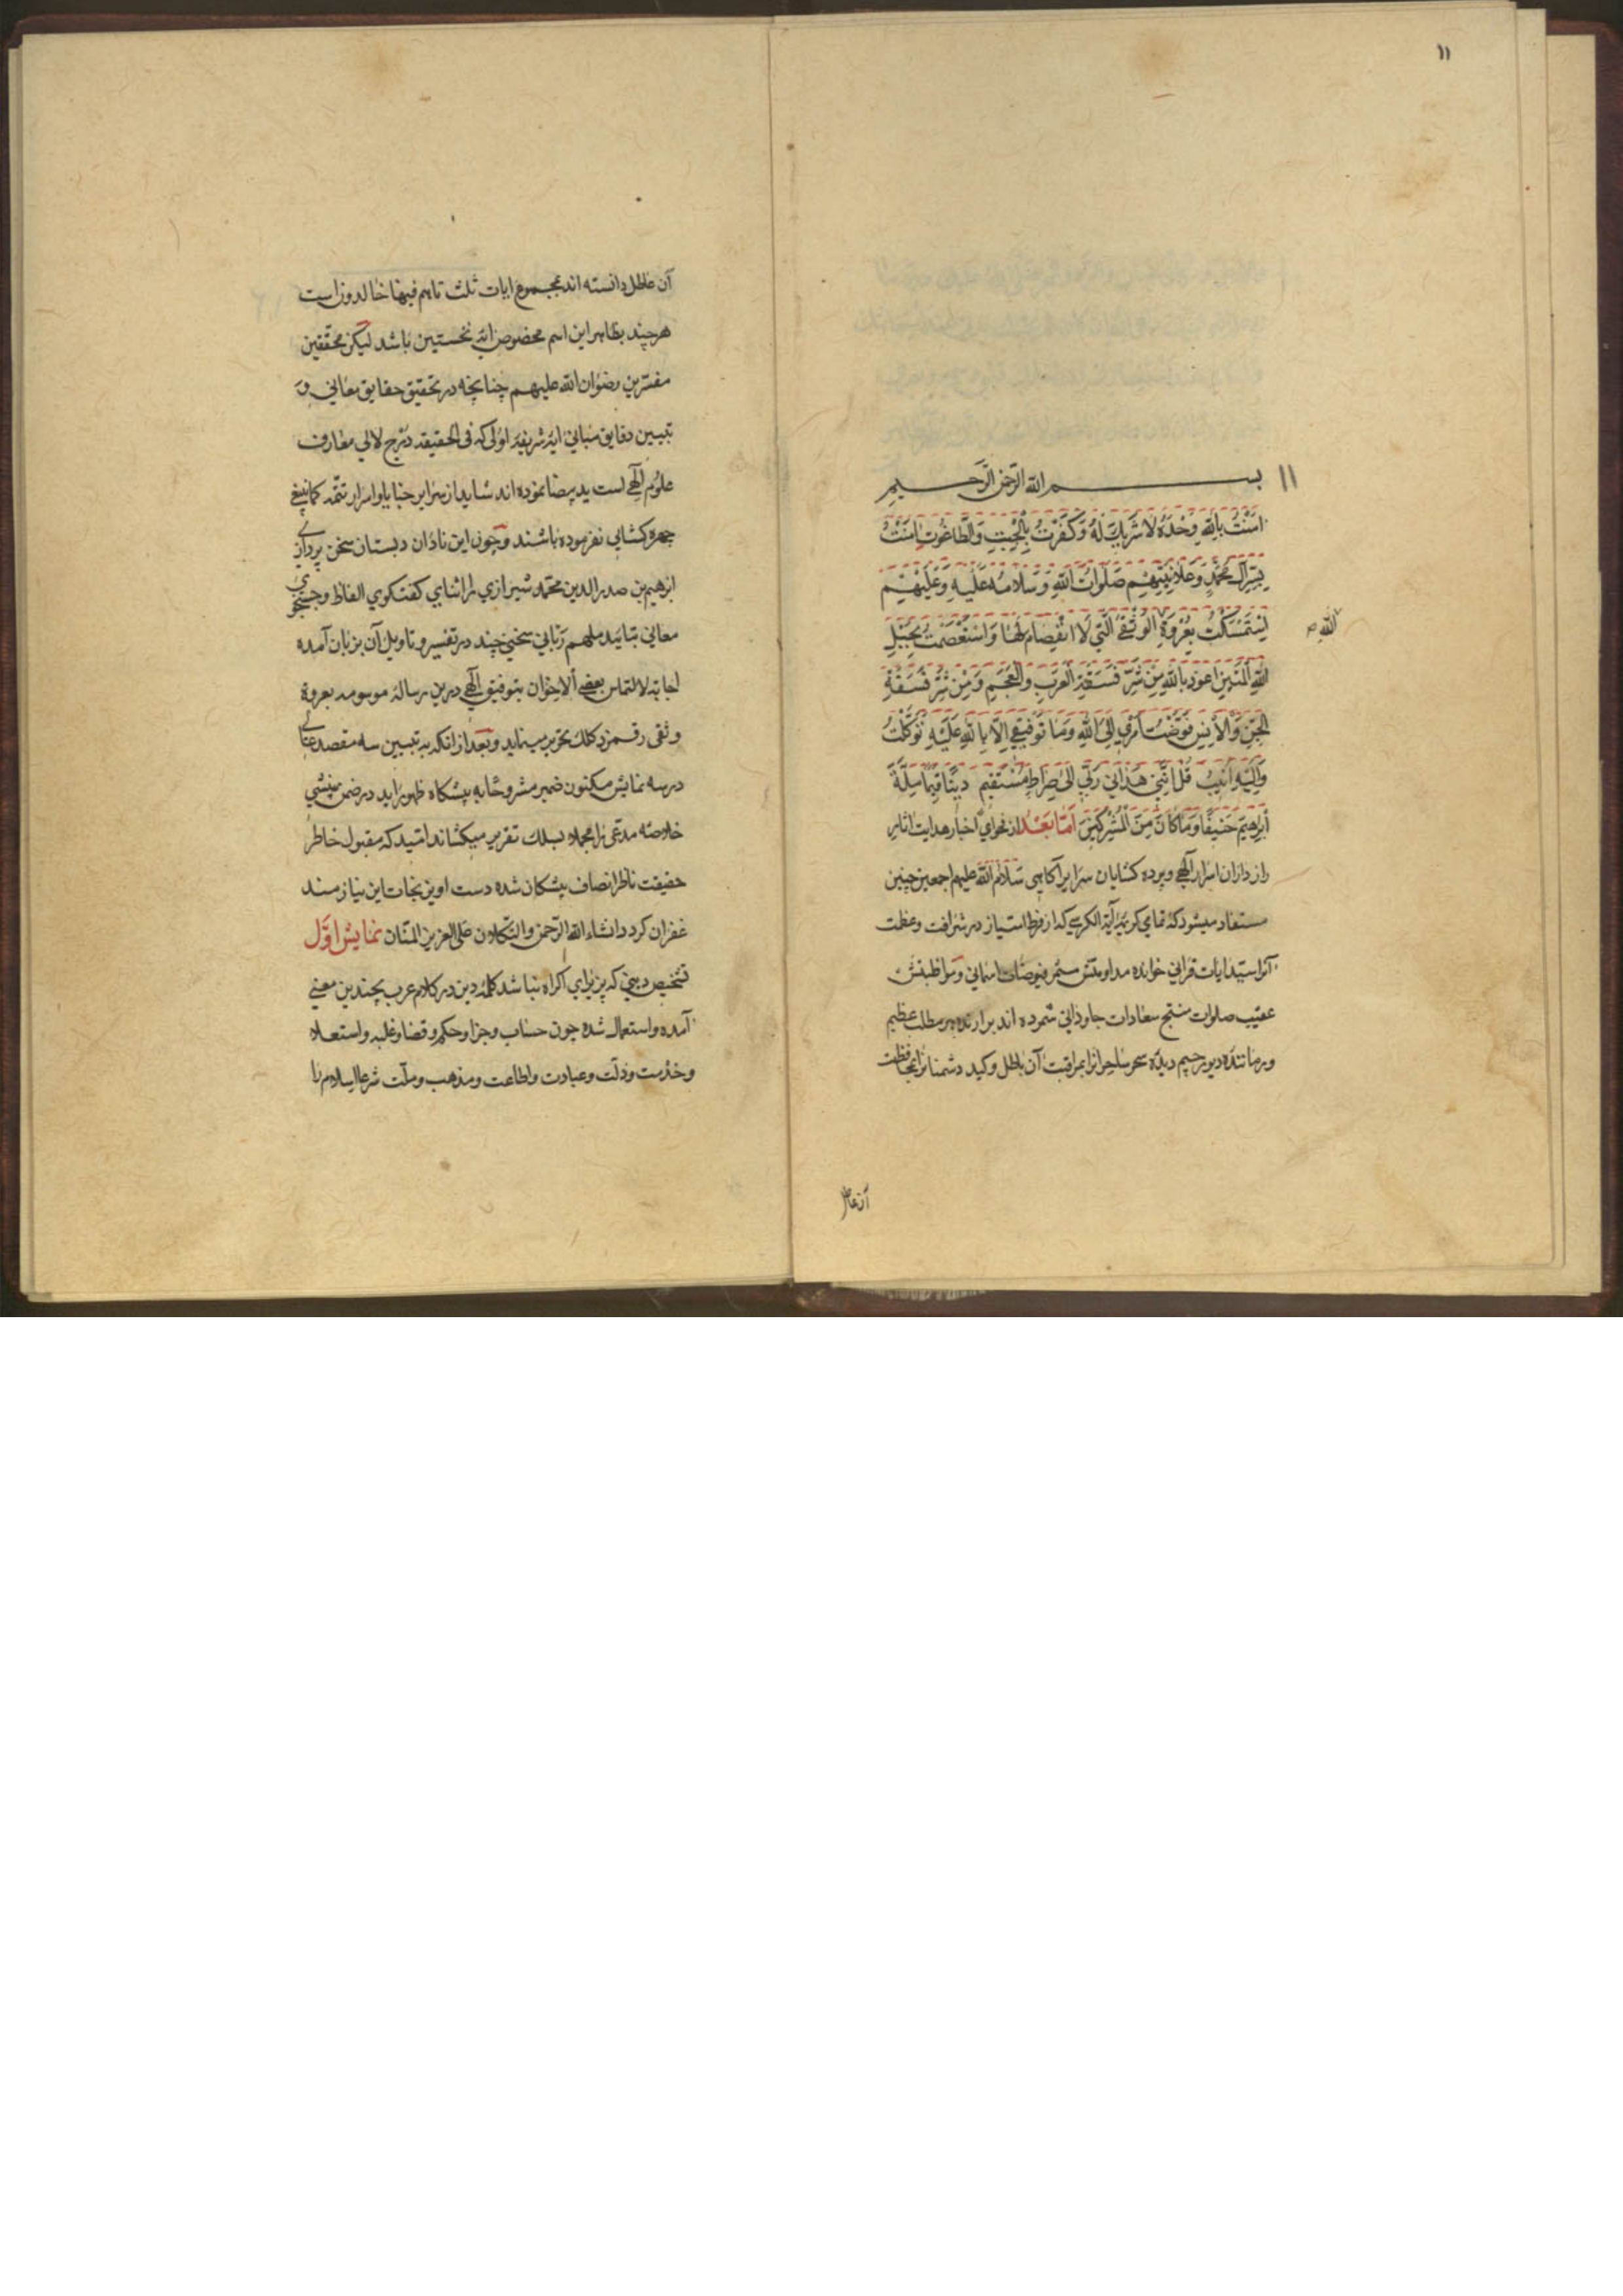 ١١
١١
بسم الله الرحمن الرحيم
امَنْتُ بِاللهِ وَحْدَهُ لا شَرِيكَ لَهُ وَكَفَرْتُ بِالْجِبْتِ وَالطَّاغُوتِ امَنْتُ
بِسِرِّ آلِ مُحَمَّدٍ وَعَلانِيَتِهِمْ صَلَوَاتُ اللهِ وَسَلامُهُ عَلَيْهِ وَعَلَيْهِمْ
اِسْتَمْسَكْتُ بِعُرْوَةِ الْوُثْقىٰ الَّتِي لَا انْفِصَامَ لَهَا وَاسْتَعْصَمْتُ بِحَبْلِ
الله
اللهِ الْمَتِينِ اعوذ بِاللهِ مِنْ شَرِّ فَسَقَةِ الْعَرَبِ وَالْعَجَمِ وَمِنْ شَرِّ فَسَقَةِ
الْجِنِّ وَالْاِنْسِ فَوَّضْتُ اَمْرِي اِلَى اللهِ وَمَا تَوْفِيقِي اِلَّا بِاللهِ عَلَيْهِ تَوَكَّلْتُ
وَاِلَيْهِ اُنِيبُ قُلْ اِنَّنِي هَدَانِي رَبِّي اِلىٰ صِرَاطٍ مُسْتَقِيمٍ دِينًا قِيَمًا مِلَّةَ
اِبْرٰهِيمَ حَنِيفًا وَمَا كَانَ مِنَ الْمُشْرِكِينَ اَمَّا بَعْدُ از فحواي اخبار هدايت اثار
راز داران اسرار الٓهي وپرده كشايان سراير آكاهى سلام الله عليهم اجمعين چنين
مستفاد ميشود كه تمامي كريمه آية الكرسي كه از فرط امتياز در شرافت وعظمت
آنرا سيد ايات قراني خوانده مداومتش مثمر فيوضات اسماني ومواظبتش
عقيب صلوات منتج سعادات جاوداني شمرده اند برارنده هر مطلب عظيم
ورماننده ديو رجيم ديده سحر ساحرانرا بمراقبت آن باطل وكيد دشمنانرا بمحافظت
آن عاطل
آن عاطل دانسته اند مجموع ايات ثلث تا هم فيها خالدون است
هرچند بظاهر اين اسم مخصوص ايه نخستين باشد ليكن محققين
مفسرين رضوان الله عليهم چنانچه در تحقيق حقايق معاني و
تبيين دقايق مباني ايه شريفه اولى كه فى الحقيقه درج لالي معارف
علوم الٓهي است يد بيضا نموده اند شايد از سراير خبايا واسرار تتمه كما ينبغي
چهره كشايي نفرموده باشند وچون اين نادان دبستان سخن پردازي
ابرهيم بن صدر الدين محمد شيرازي را اثناي كفتكوي الفاظ وجستجوي
معاني بتائيد ملهم رباني سخني چند در تفسير وتاويل آن بزبان آمده
اجابة لالتماس بعض الاخوان بتوفيق الٓهي درين رساله موسومه بعروة
وثقى رقمزد كلك تحرير مينمايد وبعد از انكه به تبيين سه مقصد عالي
در سه نمايش مكنون ضمير مشروحا به پيشكاه ظهور ايد در ضمن منبشي
خلاصه مدعى را مجملا بسلك تقرير ميكشاند اميد كه مقبول خاطر
حقيقت ناظر انصاف پيشكان شده دست اويز نجات اين نيازمند
غفران كردد انشاء الله الرحمن والتكلان على العزيز المنان نمايش اوّل
تشخيص ديني كه پزيراي اكراه نباشد كلمه دين در كلام عرب بچندين معني
آمده واستعمال شده چون حساب وجزا وحكم وقضا وغلبه واستعلاء
وخدمت وذلت وعبادت واطاعت ومذهب وملت شرعا اسلام را